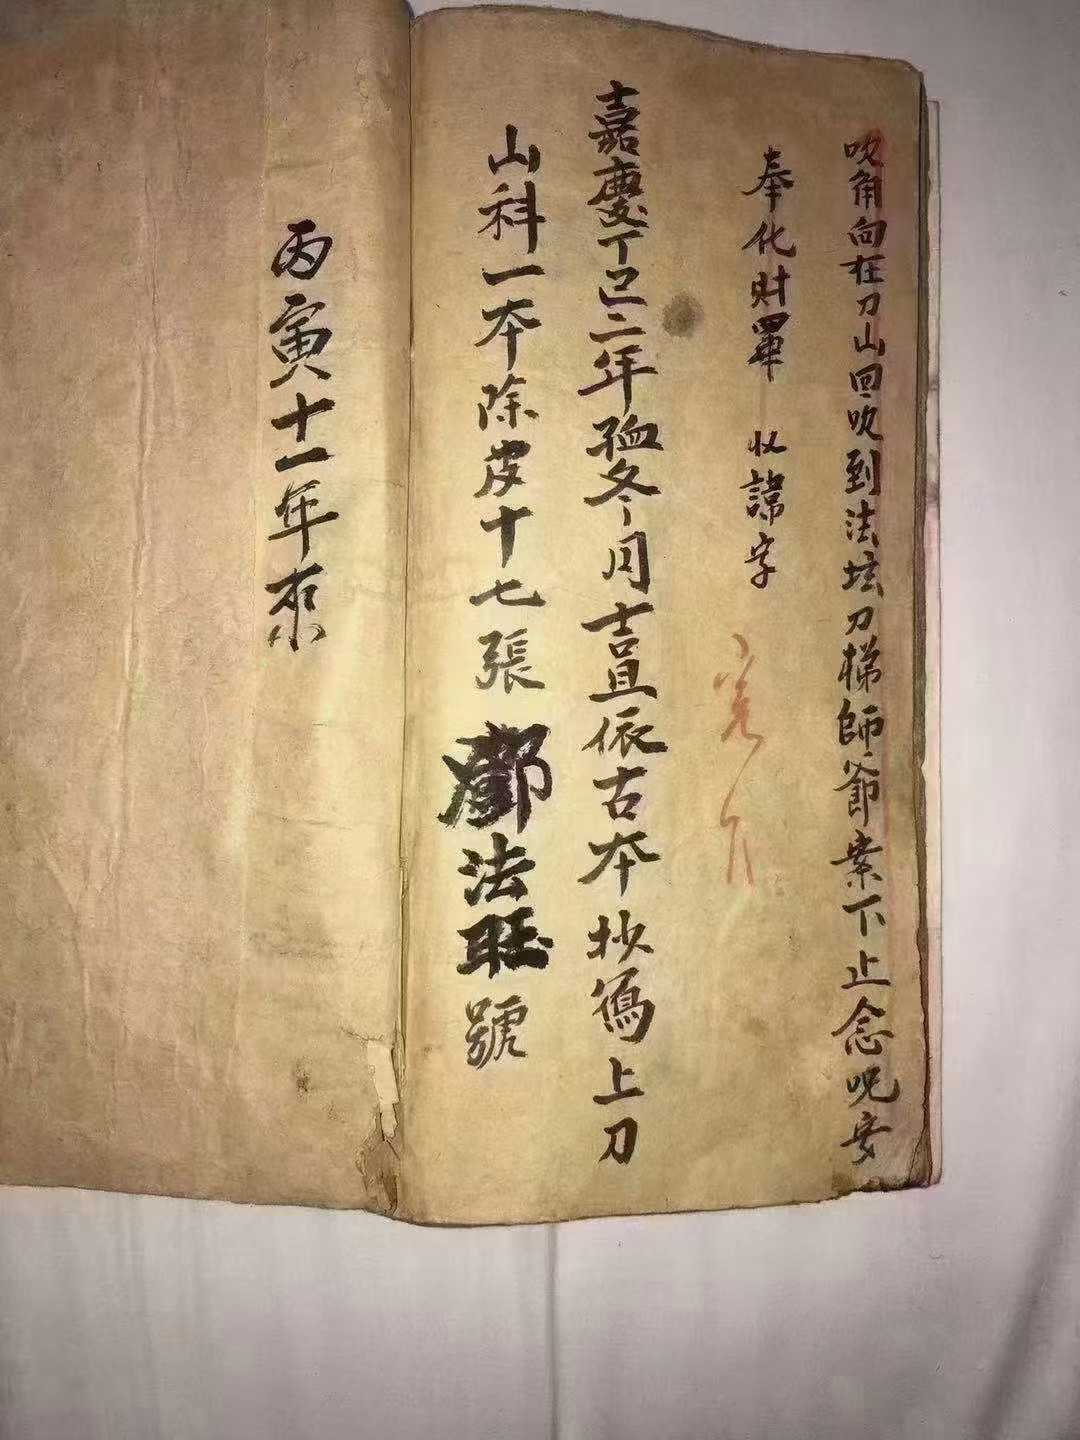 吹角向在刀山回吹到法坛刀梯師爺案下止念呪安
奉化財畢 收諱字
嘉慶丁巳二年孟冬月吉旦依古本抄寫上刀
山科一本除皮十七張 鄧法旺號
丙寅十一年來